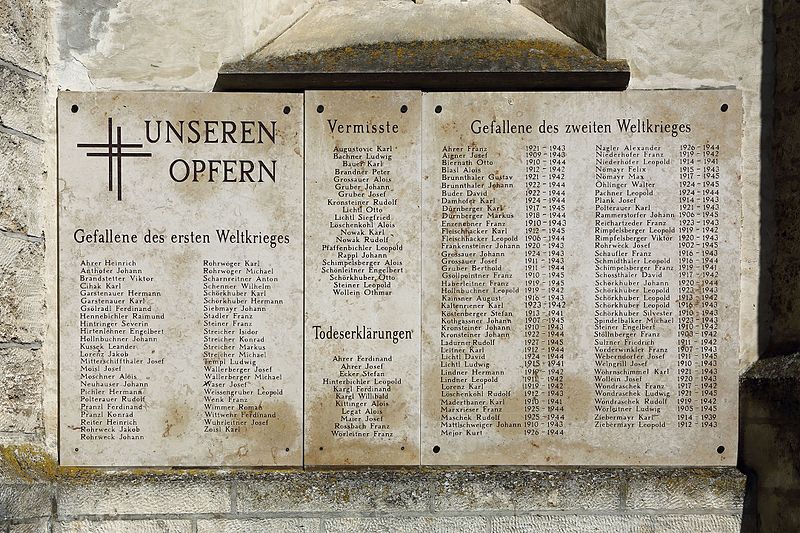 UNSEREN
OPFERN
Gefallene des ersten Weltkrieges
Ahrer Heinrich
Anthofer Johann
Brandstetter Viktor
Cihak Karl
Garstenauer Hermann
Garstenauer Karl
Gsölradl Ferdinand
Hennebichler Raimund
Hintringer Severin
Hirtenlehner Engelbert
Hollnbuchner Johann
Kussek Leander
Lorenz Jakob
Mitterschiffthaler Josef
Moisl Josef
Moschner Alois
Neuhauser Johann
Pichler Hermann
Polterauer Rudolf
Pranzl Ferdinand
Pranzl Konrad
Reiter Heinrich
Rohrweck Jakob
Rohrweck Johann
Rohrwöger Karl
Rohrwöger Michael
Scharnreitner Anton
Schenner Wilhelm
Schörkhuber Karl
Schörkhuber Hermann
Siebmayr Johann
Stadler Franz
Steiner Franz
Steiner Isidor
Streicher Konrad
Streicher Markus
Streicher Michael
Templ Ludwig
Wallerberger Josef
Wallerberger Michael
Waser Josef
Weissengruber Leopold
Wenk Franz
Wimmer Roman
Wittwehr Ferdinand
Wührleitner Josef
Zoisl Karl
Vermisste
Augustovic Karl
Bachner Ludwig
Bauer Karl
Brandner Peter
Grossauer Alois
Gruber Johann
Gruber Josef
Kronsteiner Rudolf
Lichtl Otto
Lichtl Siegfried
Löschenkohl Alois
Nowak Karl
Nowak Rudolf
Pfaffenbichler Leopold
Rappl Johann
Schimpelsberger Alois
Schönleitner Engelbert
Schörkhuber Otto
Steiner Leopold
Wollein Othmar
Todeserklärungen
Ahrer Ferdinand
Ahrer Josef
Ecker Stefan
Hinterbichler Leopold
Kargl Ferdinand
Kargl Willibald
Kittinger Alois
Legat Alois
Maier Josef
Rossbach Franz
Wörleitner Franz
Gefallene des zweiten Weltkrieges
Ahrer Franz 1921 - 1943
Aigner Josef 1909 - 1943
Biernath Otto 1910 - 1944
Blasl Alois 1912 - 1942
Brunnthaler Gustav 1921 - 1942
Brunnthaler Johann 1922 - 1944
Buder David 1922 - 1944
Damhofer Karl 1924 - 1944
Dürnberger Karl 1917 - 1945
Dürnberger Markus 1918 - 1944
Enzenebner Franz 1910 - 1943
Fleischhacker Karl 1912 - 1945
Fleischhacker Leopold 1906 - 1944
Frankensteiner Johann 1920 - 1943
Grossauer Johann 1924 - 1943
Grossauer Josef 1921 - 1943
Gruber Berthold 1911 - 1944
Gsöllpointner Franz 1910 - 1945
Haberleitner Franz 1919 - 1945
Hollnbuchner Leopold 1919 - 1942
Kainsner August 1916 - 1943
Kaltenriener Karl 1923 - 1942
Köstenberger Stefan 1913 - 1941
Kothgassner Johann 1907 - 1945
Kronsteiner Johann 1910 - 1943
Kronsteiner Johann 1922 - 1944
Ladurner Rudolf 1927 - 1945
Leitner Karl 1912 - 1944
Lichtl David 1924 - 1944
Lichtl Ludwig 1915 - 1941
Lindner Hermann
Lindner Leopold 1911 - 1942
Lorenz Karl 1919 - 1942
Löschenkohl Rudolf 1912 - 1943
Maderthaner Karl 1910 - 1941
Marxrieser Franz 1925 - 1944
Maschek Rudolf 1925 - 1944
Mattischweiger Johann 1910 - 1943
Mejor Kurt 1926 - 1944
Nagler Alexander 1926 - 1944
Niederhofer Franz 1919 - 1942
Niederhofer Leopold 1914 - 1941
Nömayr Felix 1915 - 1943
Nömayr Max 1917 - 1945
Öhlinger Walter 1924 - 1945
Pachner Leopold 1924 - 1944
Plank Josef 1914 - 1943
Polterauer Karl 1921 - 1943
Rammerstorfer Johann 1906 - 1945
Reichartzeder Franz 1923 - 1943
Rimpfelsberger Leopold 1919 - 1942
Rimpfelsberger Viktor 1920 - 1943
Rohrweck Josef 1902 - 1945
Schaufler Franz 1916 - 1943
Schmidthaler Leopold 1916 - 1944
Schimpfelsberger Franz 1919 - 1941
Schossthaler David 1917 - 1942
Schörkhuber Johann 1920 - 1944
Schörkhuber Leopold 1922 - 1943
Schörkhuber Leopold 1913 - 1942
Schörkhuber Leopold 1916 - 1943
Schörkhuber Silvester 1910 - 1943
Spindelbalker Michael 1923 - 1943
Steiner Engelbert 1910 - 1942
Stöllnberger Franz 1903 - 1942
Sulzner Friedrich 1911 - 1942
Vorderwinkler Franz 1907 - 1943
Weberndorfer Josef 1911 - 1943
Weingrill Josef 1910 - 1943
Wöhrnschimmel Karl 1921 - 1943
Wollein Josef 1920 - 1943
Wondraschek Franz 1917 - 1942
Wondraschek Ludwig 1921 - 1945
Wondraschek Rudolf 1919 - 1942
Wörleitner Ludwig 1905 - 1945
Ziebermayr Karl 1914 - 1939
Ziebermayr Leopold 1912 - 1943